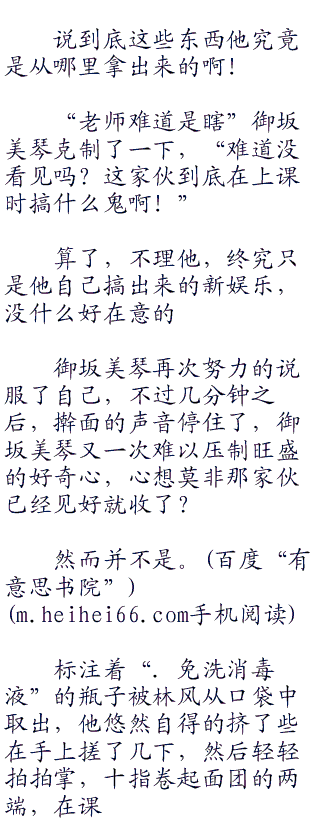 说到底这些东西他究竟
是从哪里拿出来的啊！
“老师难道是瞎”御坂
美琴克制了一下，“难道没
看见吗？这家伙到底在上课
时搞什么鬼啊！”
算了，不理他，终究只
是他自己搞出来的新娱乐，
没什么好在意的
御坂美琴再次努力的说
服了自己，不过几分钟之
后，擀面的声音停住了，御
坂美琴又一次难以压制旺盛
的好奇心，心想莫非那家伙
已经见好就收了？
然而并不是。(百度“有
意思书院”)
(m.heihei66.com手机阅读)
标注着“．免洗消毒
液”的瓶子被林风从口袋中
取出，他悠然自得的挤了些
在手上搓了几下，然后轻轻
拍拍掌，十指卷起面团的两
端，在课